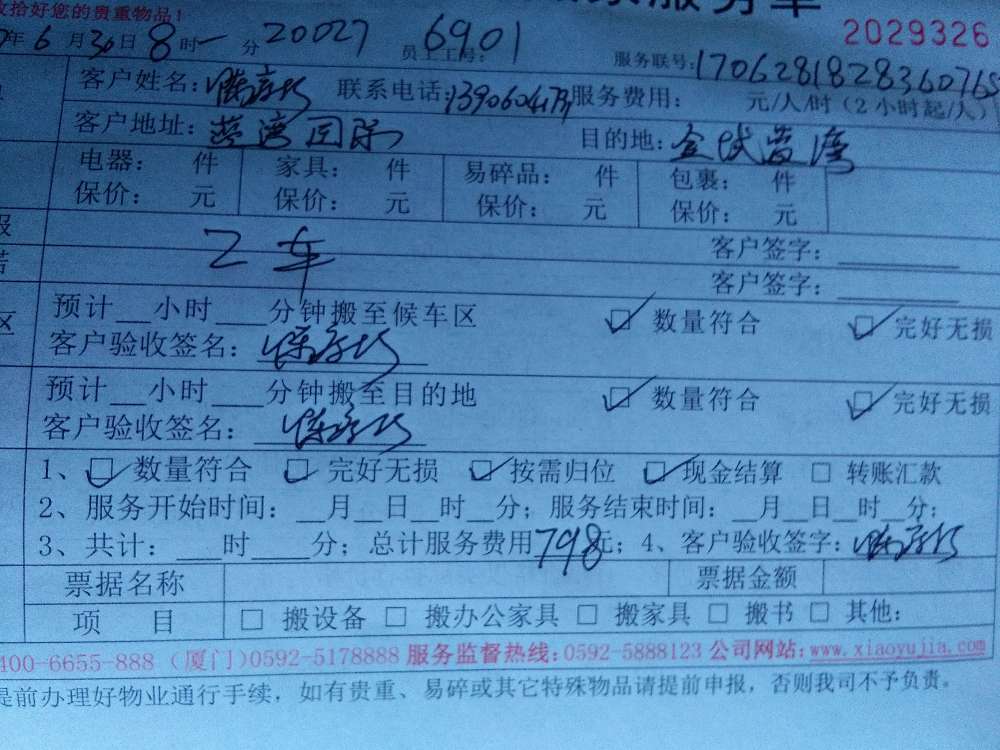 收拾好您的贵重物品!
服务单
年6月30日8时一分 20027 员工工号: 6901 2029326
服务联号: 17062818283607685
客户姓名: 联系电话: 服务费用: 元/人/时(2小时起/人)
客户地址: 蓝湾国际 目的地:
电器: 件 家具: 件 易碎品: 件 包裹: 件
保价: 元 保价: 元 保价: 元 保价: 元
2车 客户签字:
客户签字:
预计__小时____分钟搬至候车区 ☑ 数量符合 ☑ 完好无损
客户验收签名:
预计__小时____分钟搬至目的地 ☑ 数量符合 ☑ 完好无损
客户验收签名:
1、☑ 数量符合 ☑ 完好无损 ☑ 按需归位 ☑ 现金结算 □ 转账汇款
2、服务开始时间: __月__日__时__分; 服务结束时间: __月__日__时__分;
3、共计: ___时____分; 总计服务费用798元; 4、客户验收签字:
票据名称 票据金额
项 目 □ 搬设备 □ 搬办公家具 □ 搬家具 □ 搬书 □ 其他:
400-6655-888 (厦门)0592-5178888 服务监督热线:0592-5888123 公司网站:www.xiaoyujia.com
提前办理好物业通行手续, 如有贵重、易碎或其它特殊物品请提前申报, 否则我司不予负责。